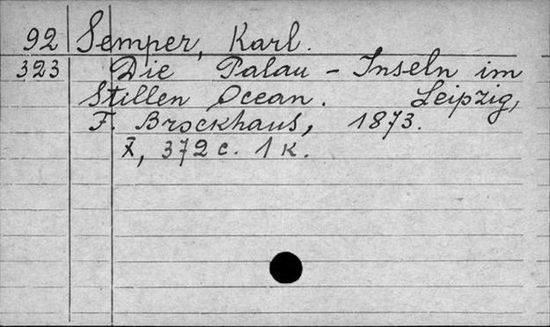 92 Semper, Karl.
323 Die Palau-Inseln im
Stillen Ocean. Leipzig,
F. Brockhaus, 1873.
X, 372 c. 1 к.